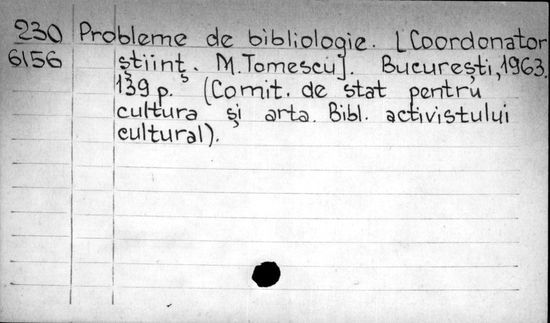 230 Probleme de bibliologie. [Coordonator
6156 științ. M.Tomescu]. București, 1963.
139 p. (Comit. de stat pentru
cultura și arta. Bibl. activistului
cultural).